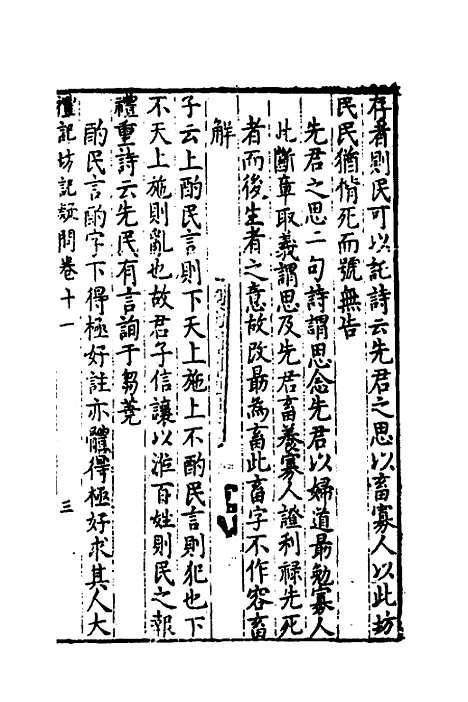 存者則民可以託詩云先君之思以畜寡人以此坊
民民猶偝死而號無告
先君之思二句詩謂思念先君以婦道最勉寡人
此斷章取義謂思及先君畜養寡人證利祿先死
者而後生者之意故改最為畜此畜字不作容畜
解
子云上酌民言則下天上施上不酌民言則犯也下
不天上施則亂也故君子信讓以涖百姓則民之報
禮重詩云先民有言詢于芻蕘
酌民言酌字下得極好註亦體得極好求其人大
禮記坊記疑問卷十一 三